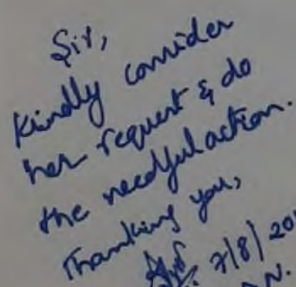 Sir,
Kindly consider
her request & do
the needful action.
Thanking you,
7/8/20
N.